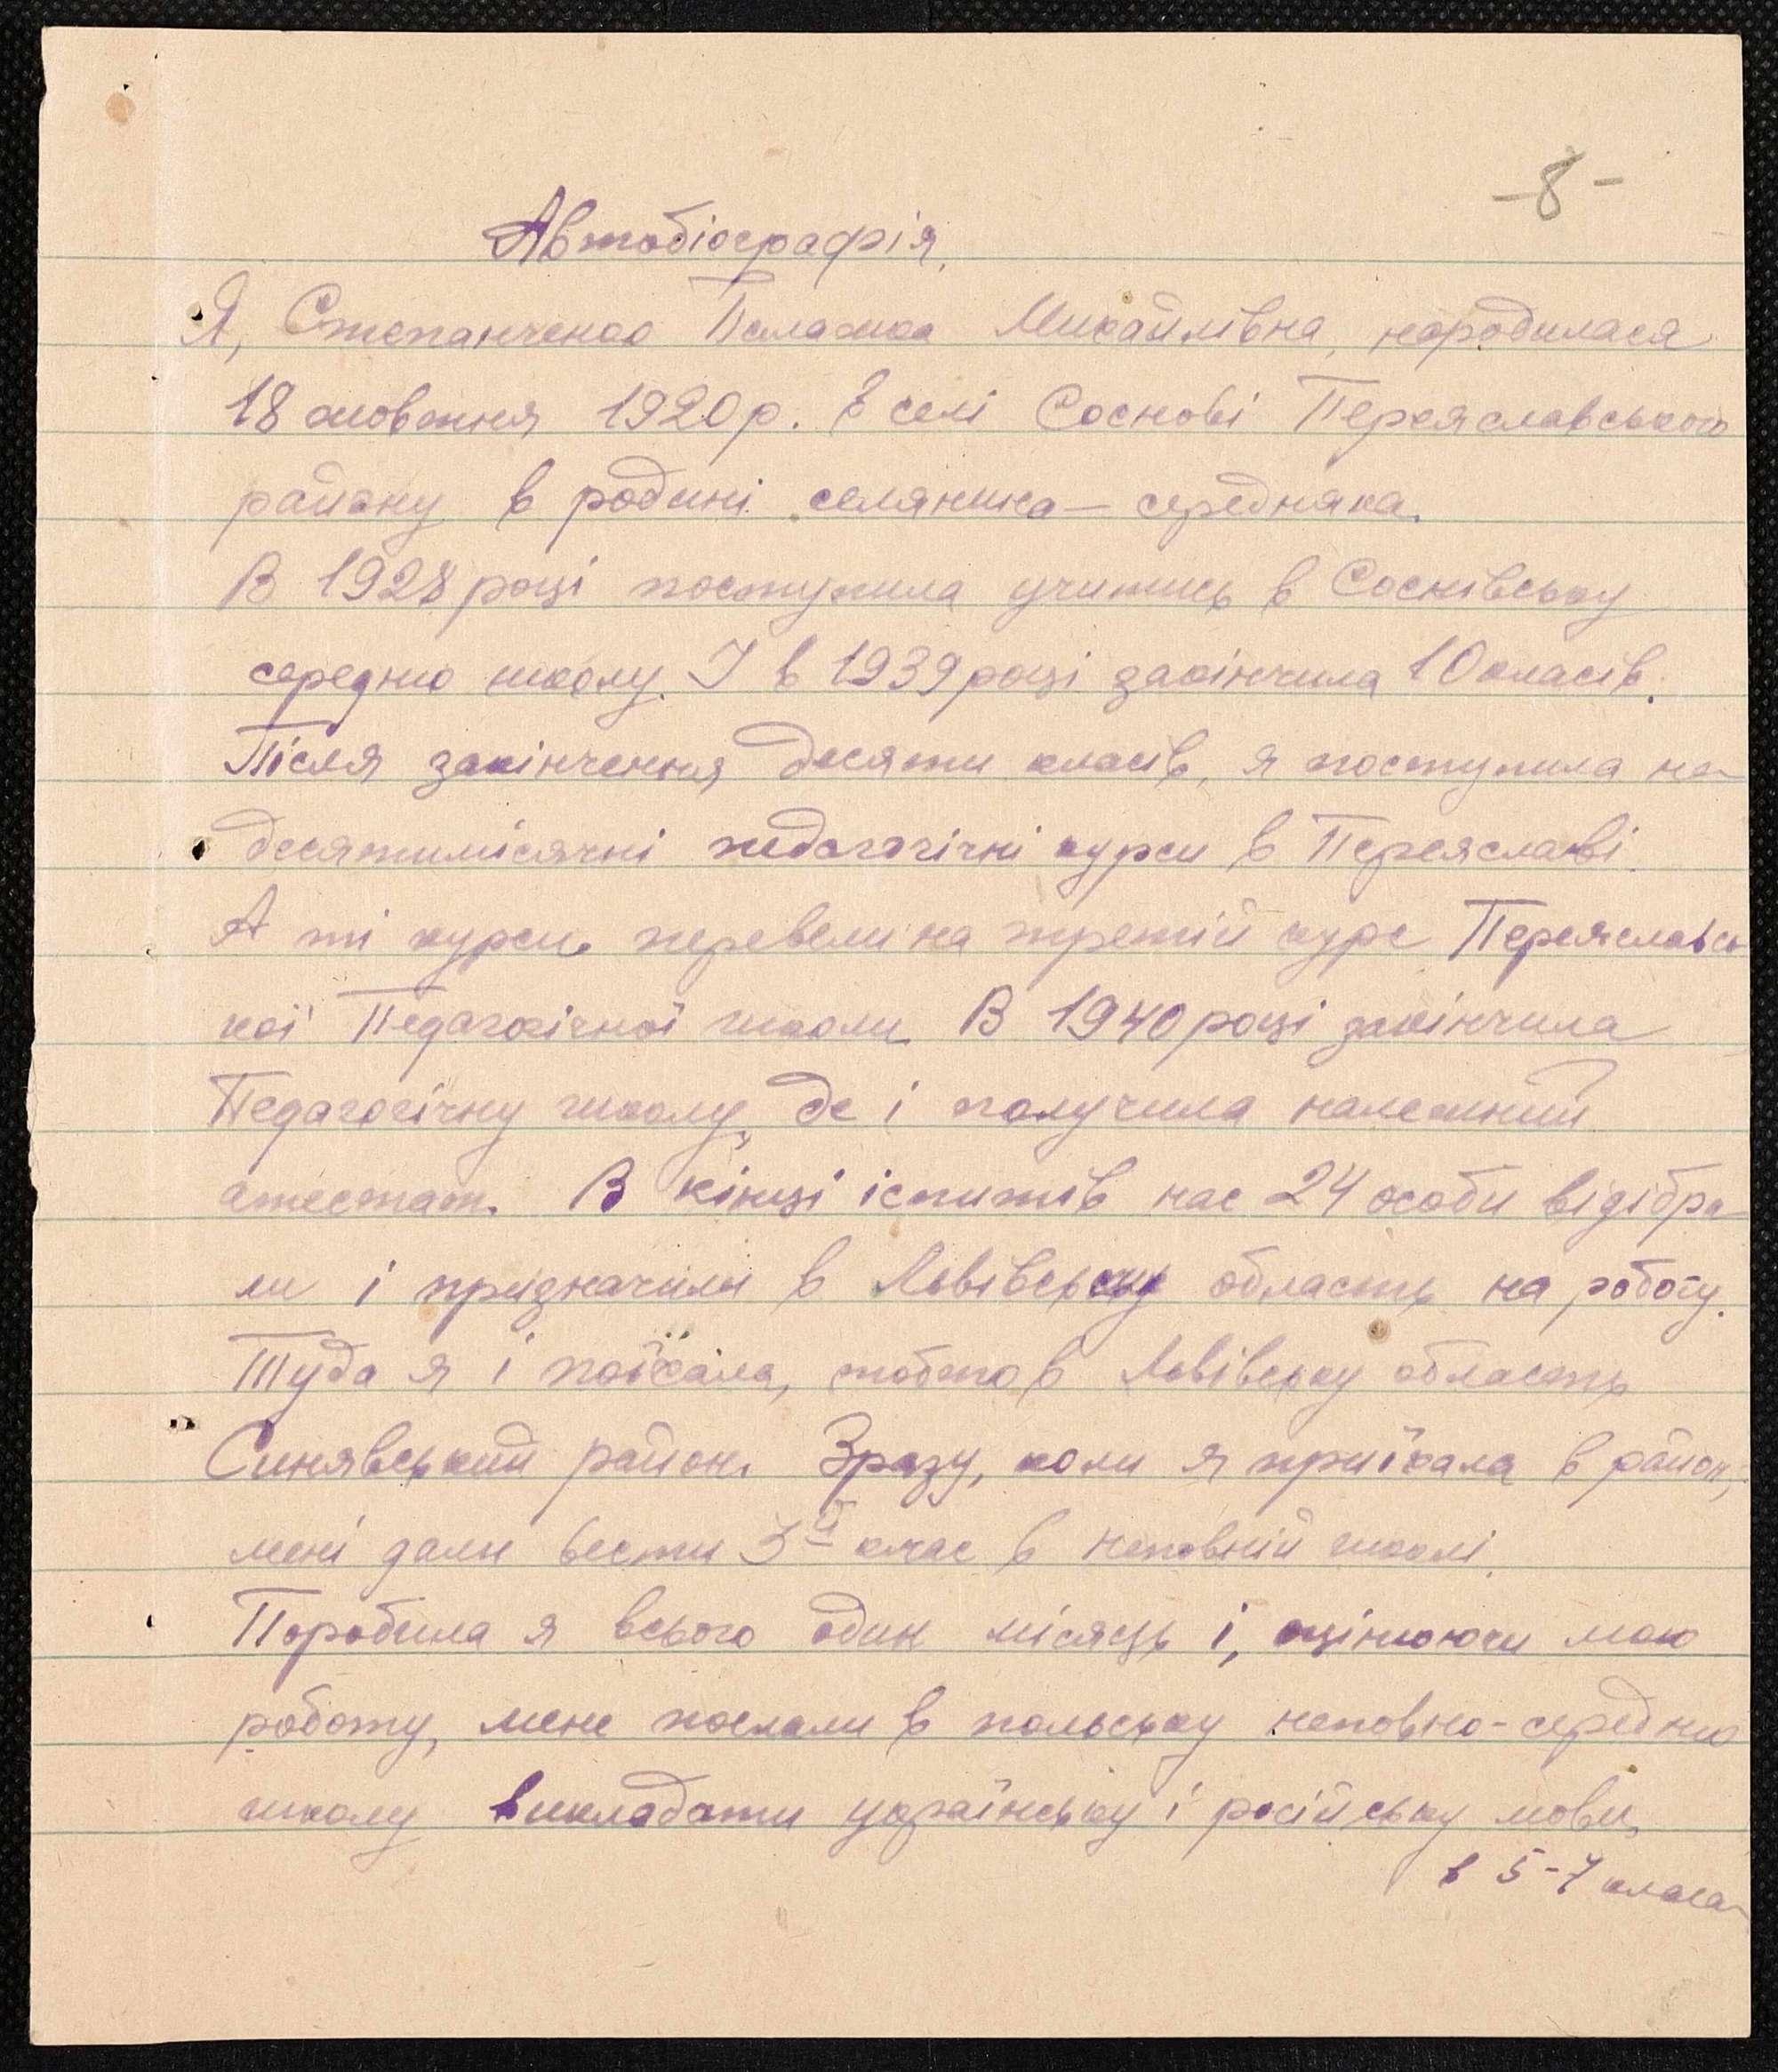 -8-
Автобіографія.
Я, Степанченко Пелажка Михайлівна, народилася
18 жовтня 1920 р. в селі Соснові Переяславського
району в родині селянина - середняка.
В 1928 році поступила учитись в Соснівську
середню школу. І в 1939 році закінчила 10 класів.
Після закінчення десяти класів, я поступила на
десятимісячні педагогічні курси в Переяславі.
А ті курси перевели на третій курс Переяславсь
кої Педагогічної школи. В 1940 році закінчила
Педагогічну школу, де і получила належний
атестат. В кінці іспитів нас 24 особи відібра-
ли і призначили в Львівську область на роботу.
Туда я і поїхала, тобто в Львівську область
Синявський район. Зразу, коли я приїхала в район,
мені дали вести 3й клас в неповній школі.
Поробила я всього один місяць і, оцінюючи мою
роботу, мене послали в польську неповно-середню
школу викладати українську і російську мови,
в 5-7 класа-